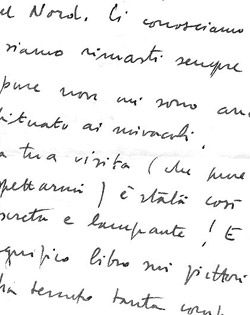 el Nord. Ci conosciamo
siamo rimasti sempre
pure non mi sono an
bituato ai miracoli.
a tua visita (che pure
spettarmi) è stata così
screta e lampante! E
gnifico libro sui pittori
ha tenuto tanta comp